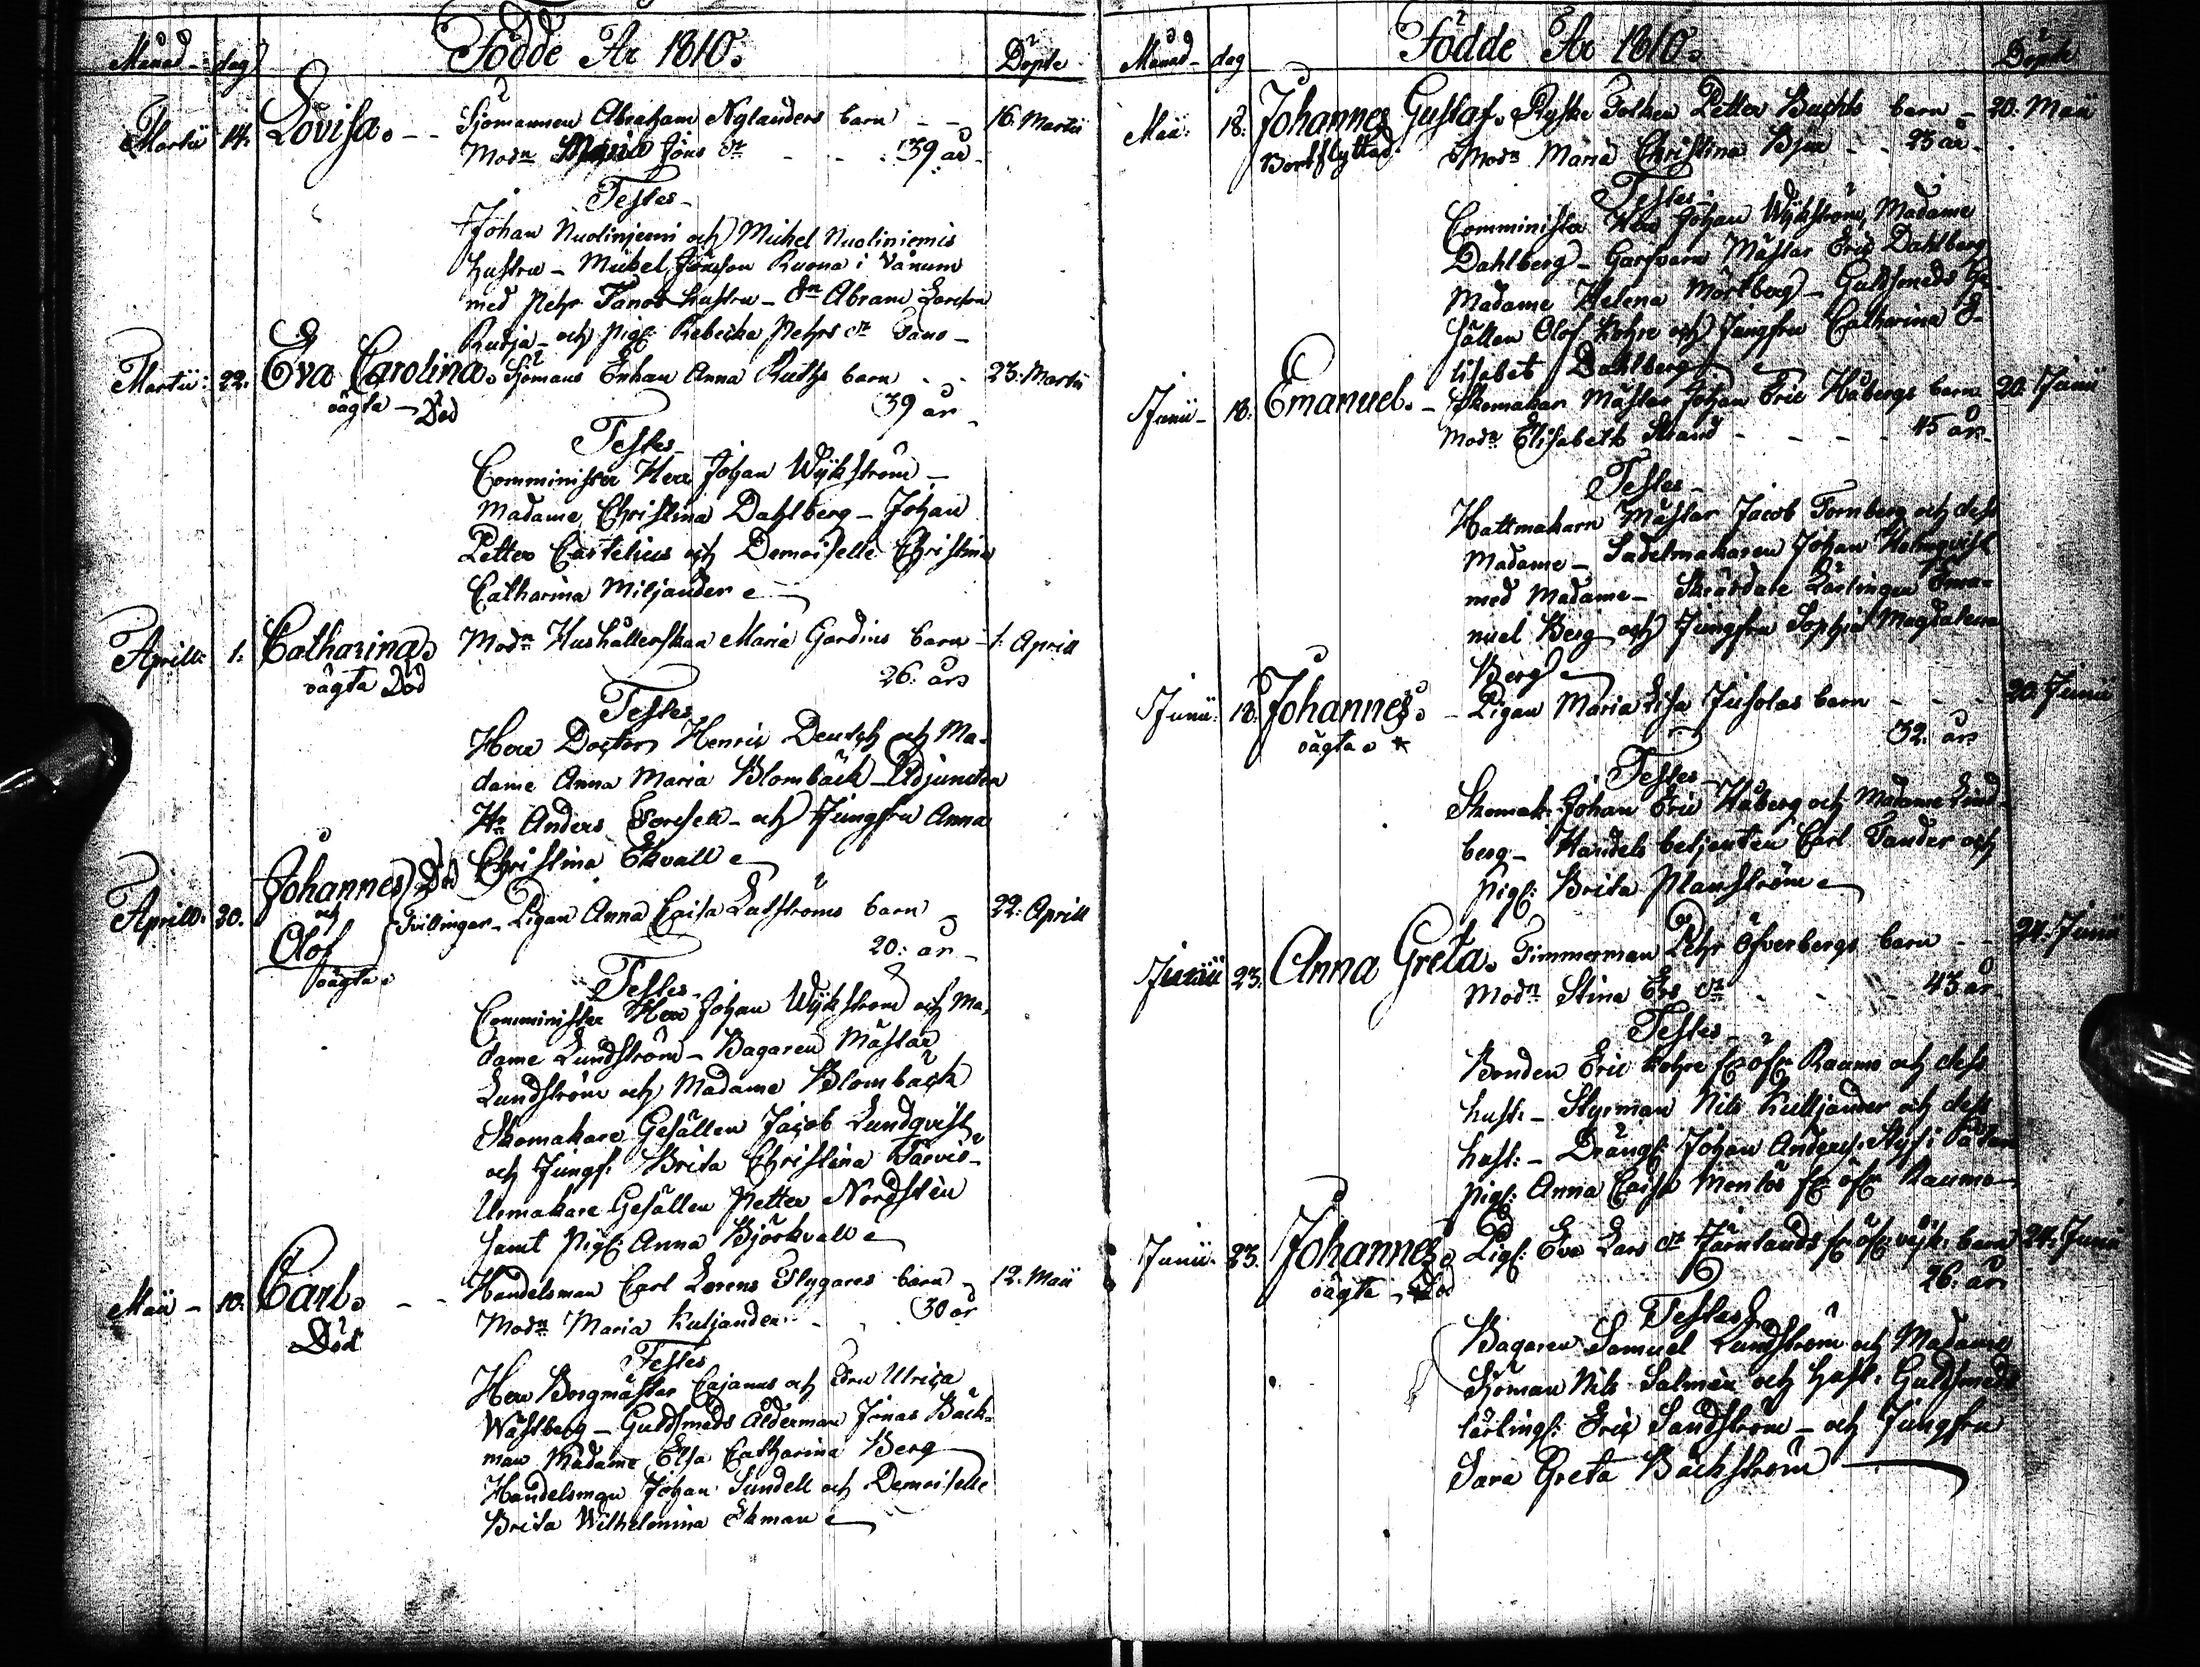 Månad dag Födde År 1810. Döpte
Martii 14. Lovisa. Sjömannen Abraham Nylanders barn 16. Martii
Modn Maria Jöns dr 39 år
Testes
Johan Nuoliniemi och Michel Nuoliniemis
hustru - Michel Jönsson Ruona i Vånum
med Pehr Fanos hustru - Abram Larsson
Rudja - och pig: Rebecka Pehrs dr Fano
Martii 22. Eva Carolina. Sjömans Enkan Anna Ruths barn 23. Martii
oägta - Död 39 år
Testes
Comminister Herr Johan Wijkström -
Madame Christina Dahlberg - Johan
Petter Castelius och Demoiselle Christina
Catharina Miljander
Aprill 1. Catharina. Modn Hushållerskan Maria Gardins barn 1. Aprill
oägta Död 26. år
Testes
Herr Doctorn Henric Deutsch och Ma-
dame Anna Maria Blombäck - Adjuncten
Hr Anders - och Jungfru Anna
Christina Ekvall
Aprill. 20. Johannes Död
och
Olof Tvillingar - Pigan Anna Caisa Lutströms barn 22. Aprill
oägta 20. år
Testes
Comminister Herr Johan Wijkström och Ma-
dame Lundström - Bagaren Mästar
Lundström och Madame Blombäck
Skomakare Gesällen Jacob Lundqvist
och Jungf: Brita Christina Tärvis -
Urmakare Gesällen Petter Nordstén
samt Pig: Anna Björkvall
Maii 10. Carl. Handelsman Carl Lorens Flygares barn 12. Maii
Död Modn Maria Kuljander 30 år
Testes
Herr Borgmästar Cajanus och Fru Ulrica
Wahlberg - Guldsmeds Ålderman Jonas Bäck-
man Madame Elsa Catharina Berg
Handelsman Johan Sundell och Demoiselle
Brita Wilhelmina Ekman
Månad dag Födde År 1810. Döpte
Maii. 18. Johannes Gustaf. Ryske Tolken Petter Buchts barn 20. Maii
Bortflyttad. Modn Maria Christina Bjur 23 år
Testes
Comminister Herr Johan Wijkström, Madame
Dahlberg - Garfvare Mästar Eric Dahlberg
Madame Helena Mörtberg - Guldsmeds Ge-
sällen Olof Kohre och Jungfru Catharina E-
lisabet Dahlberg
Junii 18. Emanuel. Skomakar Mästar Johan Eric Håbergs barn 20. Junii
Modn Elisabeth Strand 45 år
Testes
Hattmakare Mästar Jacob Tornberg och dess
Madame - Sadelmakaren Johan Holmqvist
med Madame - Skräddare Lärlingen Ema-
nuel Berg och Jungfru Sophia Magdalena
Berg
Junii. 18. Johannes. Pigan Maria Lisa Juholas barn 20. Junii
oägta 32. år
Testes
Skomak: Johan Eric Håberg och Madame Lind-
berg - Handels betjenten Carl Tander och
pig: Brita Planström
Junii 23. Anna Greta. Timmerman Pehr Öfverbergs barn 24. Junii
Modn Stina Ers dr 43 år
Testes
Bonden Eric Kohre fr öfr Raumo och dess
hust: - Styrman Nils Kulljander och dess
hust: - Dräng: Johan Anders:
pig: Anna Caisa Menlös fr öfr Raumo
Junii. 23. Johannes. Pig: Eva Lars dr Järnlands fr öfr barn 24. Junii
oägta - Död 26. år
Testes
Bagaren Samuel Lundström och Madame
Sjöman Nils Salmén och Hust: Guldsmeds
lärling: Eric Sandström - och Jungfru
Sara Greta Bäckström